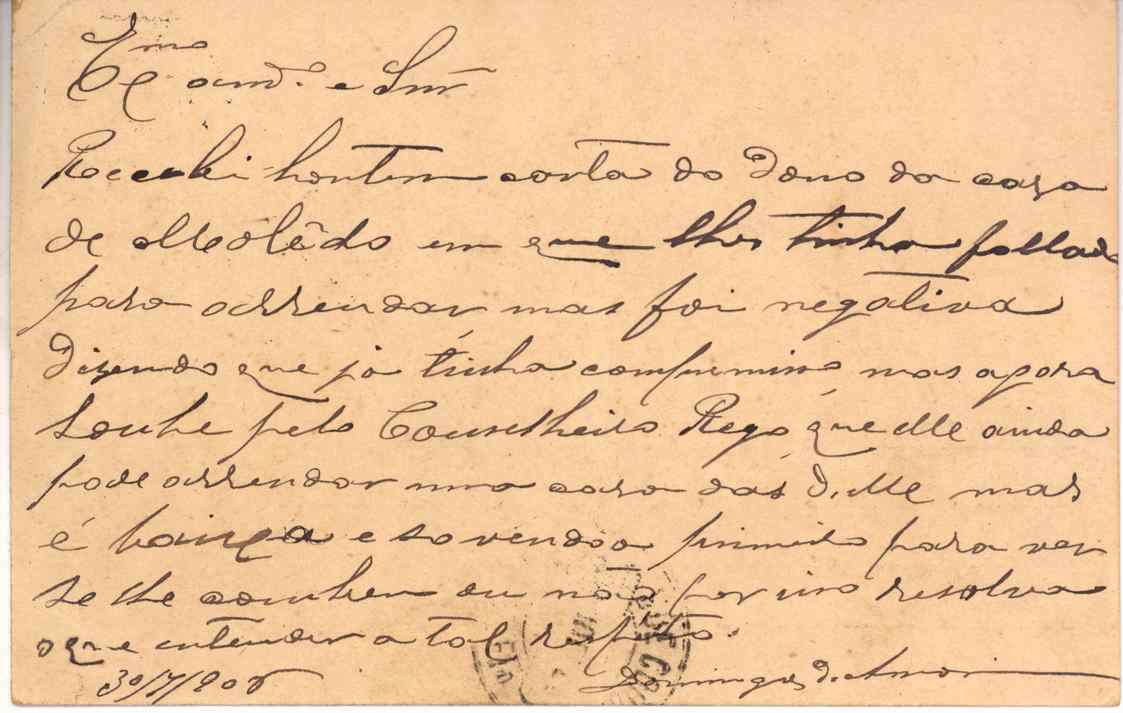 Exmo am.o e Snr
Recebi hontem carta do Dono da casa
de Molêdo em que lhes tinha fallado
para arrendar mas foi negativa
Dizendo que já tinha compremisso mas agora
soube pelo Counselheiro Rego que elle ainda
pode arrendar uma casa das d'elle mas
é baixa e so vendo a primeiro para ver
se lhe comvem ou não por isso resolva
o que entender a tal respeito.
30/7/906 Domingos d'